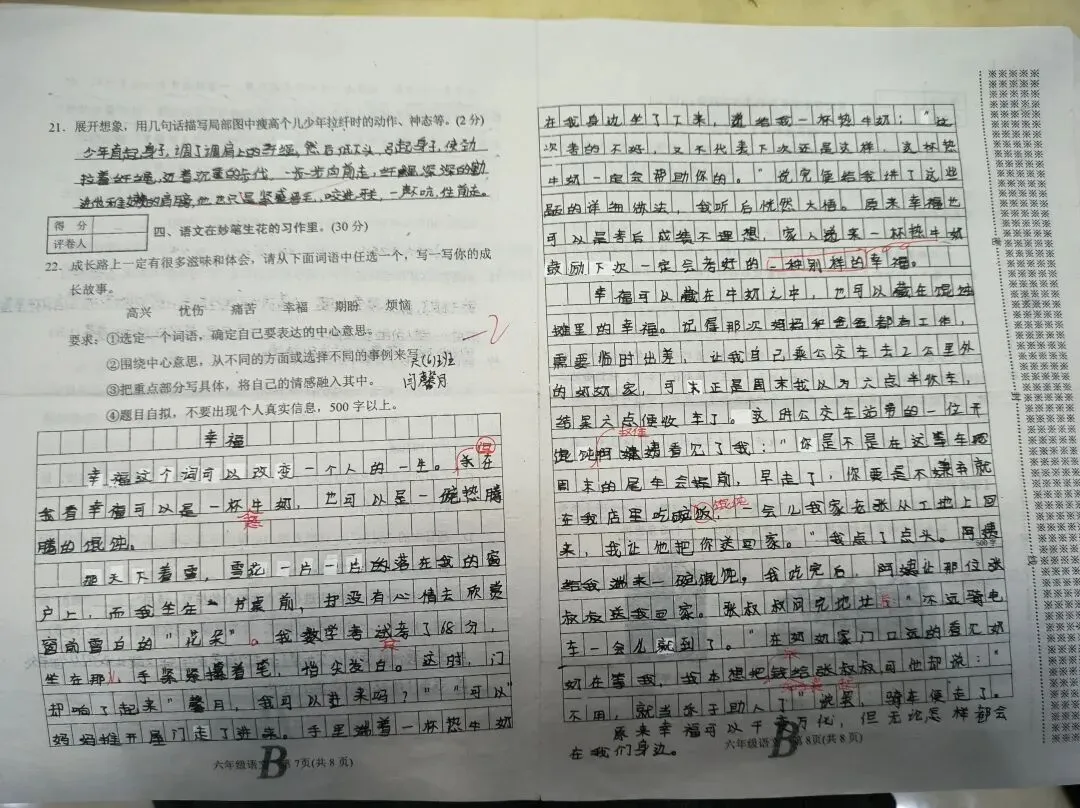 21. 展开想象，用几句话描写局部图中瘦高个儿少年拉纤时的动作、神态等。(2 分)
少年直起身子，调了调肩上的纤绳，然后低下头，弓起身子，使劲
拉着纤绳，迈着沉重的步伐，一步步向前走，纤绳深深的勒
进他稚嫩的肩膀，他也只是紧皱眉毛，咬进牙关，一声不吭，往前走。
得 分
评卷人
四、语文在妙笔生花的习作里。(30 分)
22. 成长路上一定有很多滋味和体会，请从下面词语中任选一个，写一写你的成
长故事。
高兴 忧伤 痛苦 幸福 期盼 烦恼
要求：①选定一个词语，确定自己要表达的中心意思。
-2
②围绕中心意思，从不同的方面或选择不同的事例来写。
③把重点部分写具体，将自己的情感融入其中。
闫馨月
④题目自拟，不要出现个人真实信息，500 字以上。
幸福
幸福这个词可以改变一个人的一生。我在
我看幸福可以是一杯牛奶，也可以是一碗热腾
腾的馄饨。
那天下着雪，雪花一片一片的落在我的窗
户上，而我坐在书桌前，却没有心情去欣赏
窗前雪白的“花朵”。我数学考试考了68分，
坐在那儿，手紧紧攥着笔，指尖发白。这时，门
却响了起来“馨月，我可以进来吗？”“可以”
妈妈推开屋门走了进来。手里端着一杯热牛奶
六年级语文B 第 7页(共 8 页)
在我身边坐了下来，递给我一杯热牛奶：“这
次考的不好，又不代表下次还是这样，这杯热
牛奶一定会帮助你的。”说完便给我讲了这些
题的详细做法，我听后恍然大悟。原来幸福也
可以是考后成绩不理想，家人递来一杯热牛奶
鼓励下次一定会考好的一种别样的幸福。
幸福可以藏在牛奶之中，也可以藏在馄饨
摊里的幸福。记得那次妈妈和爸爸都有工作，
需要临时出差，让我自己乘公交车去2公里外
的奶奶家，可未正是周末我以为六点半休车，
结果六点便收车了。这时公交车站旁的一位开
馄饨阿姨看见了我：“你是不是在这等车呢
周末的尾车会提前，早走了，你要是不嫌弃就
在我店里吃碗饭，一会儿我家老张从工地上回
馄饨
来，我让他把你送回家。”我点了点头。阿姨
500字
给我端来一碗馄饨，我吃完后，阿姨让那位张
叔叔送我回家。张叔叔问完地址后“不远骑电
车一会儿就到了。”在奶奶家门口远的看见奶
奶在等我，我本想把钱给张叔叔可他却说：“
不用，就当乐于助人了”说罢，骑车便走了。
原来幸福可以千变万化，但无论怎样都会
在我们身边。
六年级语文B 第 8页(共 8 页)
密
封
线